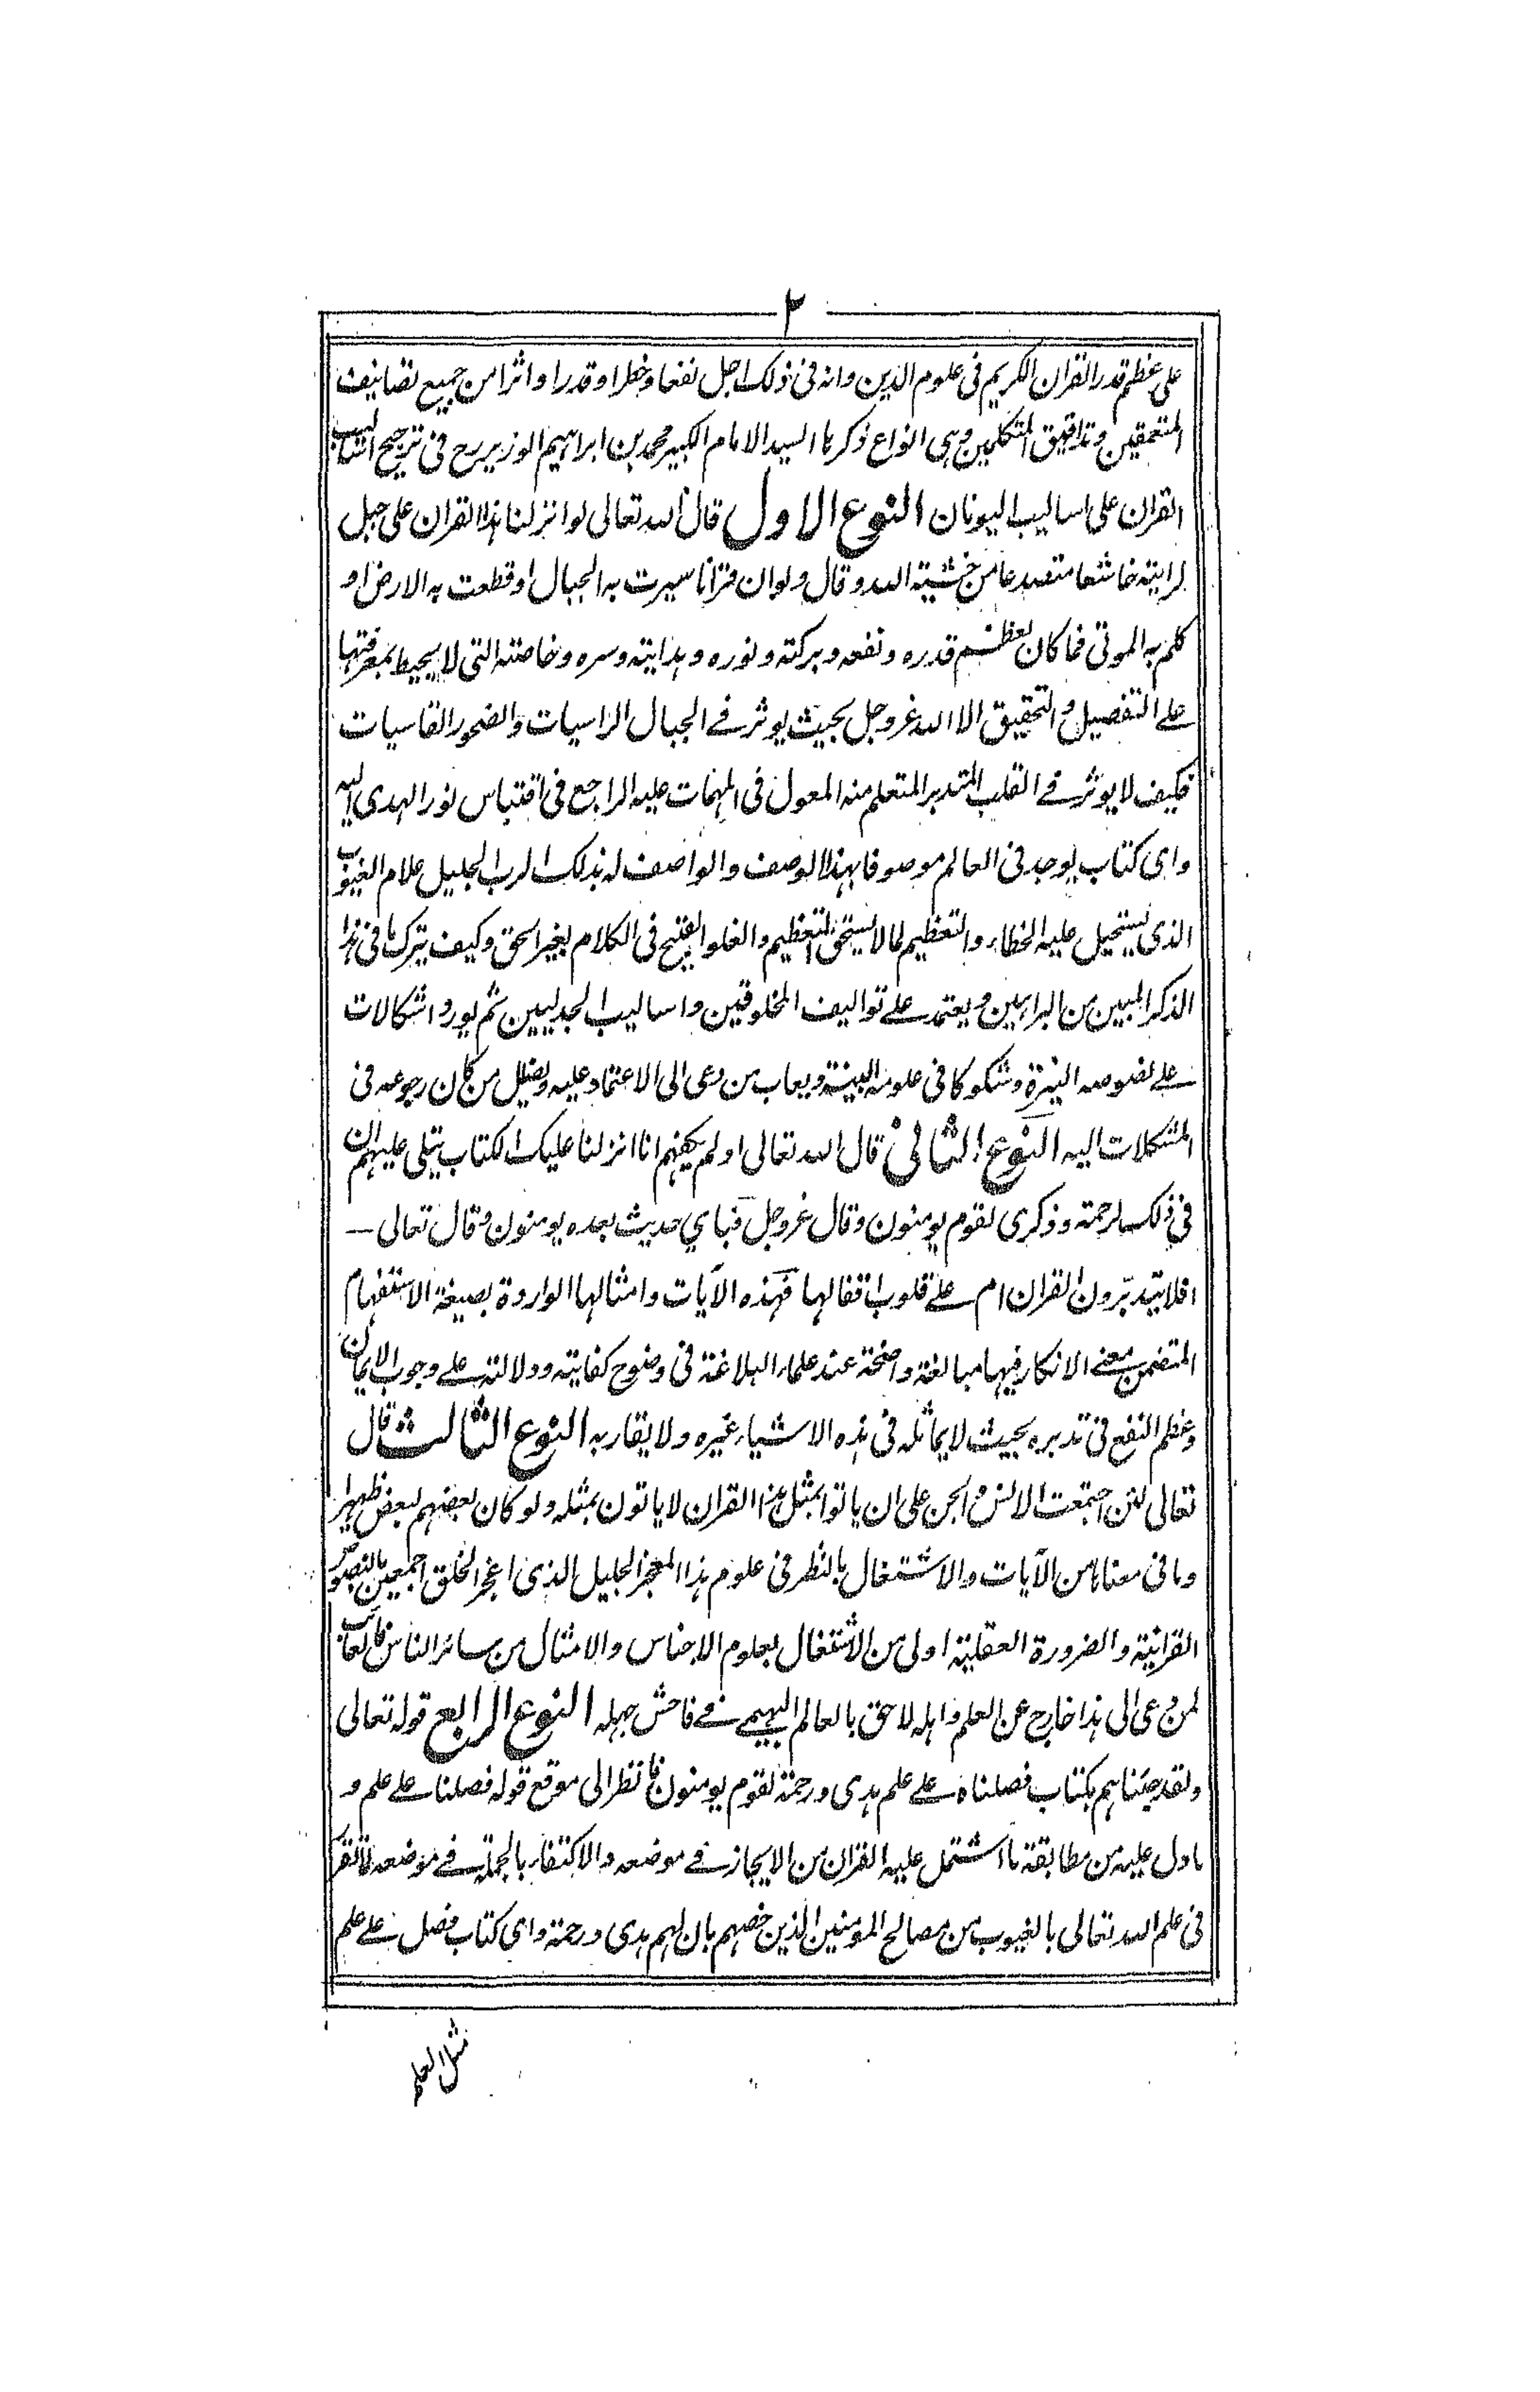 ٢
على عظم قدر القران الكريم فى علوم الدين وانه فى ذلك اجل نفعا وخطرا وقدرا واثرا من جميع تصانيف
المتعمقين وتدقيق المتكلمين وهى انواع ذكرها السيد الامام الكبير محمد بن ابراهيم الوزير رح فى ترجيح اساليب
القران على اساليب اليونان النوع الاول قال الله تعالى لو انزلنا هذا القران على جبل
لرايته خاشعا متصدعا من خشية الله وقال ولو ان قرانا سيرت به الجبال او قطعت به الارض او
كلم به الموتى فما كان لعظم قدره ونفعه وبركته ونوره وهدايته وسره وخاصته التى لا يحيط بمعرفتها
على التفصيل والتحقيق الا الله عزوجل بحيث يوثر فے الجبال الراسيات والصخور القاسيات
فكيف لا يوثر فے القلب المتدبر المتعلم منه المعول فى المهمات عليه الراجع فى اقتباس نور الهدى اليه
واى كتاب يوجد فى العالم موصوفا بهذا الوصف والواصف له بذلك الرب الجليل علام الغيوب
الذى يستحيل عليه الخطاء والتعظيم لما لا يستحق التعظيم والغلو القبيح فى الكلام بغير الحق وكيف يترك ما فى هذا
الذكر المبين من البراهين ويعتمد على تواليف المخلوقين واساليب الجدليين ثم يورد اشكالات
على نصوصه النيرة وشكوكا فى علومه البينة ويعاب من دعى الى الاعتماد عليه ويضلل من كان رجوعه فى
المشكلات اليه النوع الثانى قال الله تعالى اولم يكفهم انا انزلنا عليك الكتاب يتلى عليهم ان
فى ذلك لرحمة وذكرى لقوم يومنون وقال عزوجل فباي حديث بعده يومنون وقال تعالى ــ
افلا يتدبّرون القران ام على قلوب اقفالها فهذه الآيات وامثالها الواردة بصيغة الاستفهام
المتضمن معنے الانكار فيها مبالغة واضحة عند علماء البلاغة فى وضوح كفايته ودلالته على وجوب الايمان
وعظم النفع فى تدبره بحيث لا يماثله فى هذه الاشياء غيره ولا يقاربه النوع الثالث قال
تعالى لئن اجتمعت الانس والجن على ان ياتوا بمثل هذا القران لا ياتون بمثله ولو كان بعضهم لبعض ظهيرا
وما فى معناها من الآيات والاشتغال بالنظر فى علوم هذا المعجز الجليل الذى اعجز الخلق اجمعين بالنصوص
القرانية والضرورة العقلية اولى من الاشتغال بعلوم الاجناس والامثال من سائر الناس فالعائب
لمن دعى الى هذا خارج عن العلم واهله لاحق بالعالم البهيمے فے فاحش جهله النوع الرابع قوله تعالى
ولقد جئناهم بكتاب فصلناه على علم هدى ورحمة لقوم يومنون فانظر الى موقع قوله فصلناه على علم و
ما دل عليه من مطابقة ما اشتمل عليه القران من الايجاز فے موضعه والاكتفاء بالجملة فے موضعه لما تقرر
فى علم الله تعالى بالغيوب من مصالح المومنين الذين خصهم بان لهم هدى ورحمة واى كتاب فصل على علم
مثل العلم